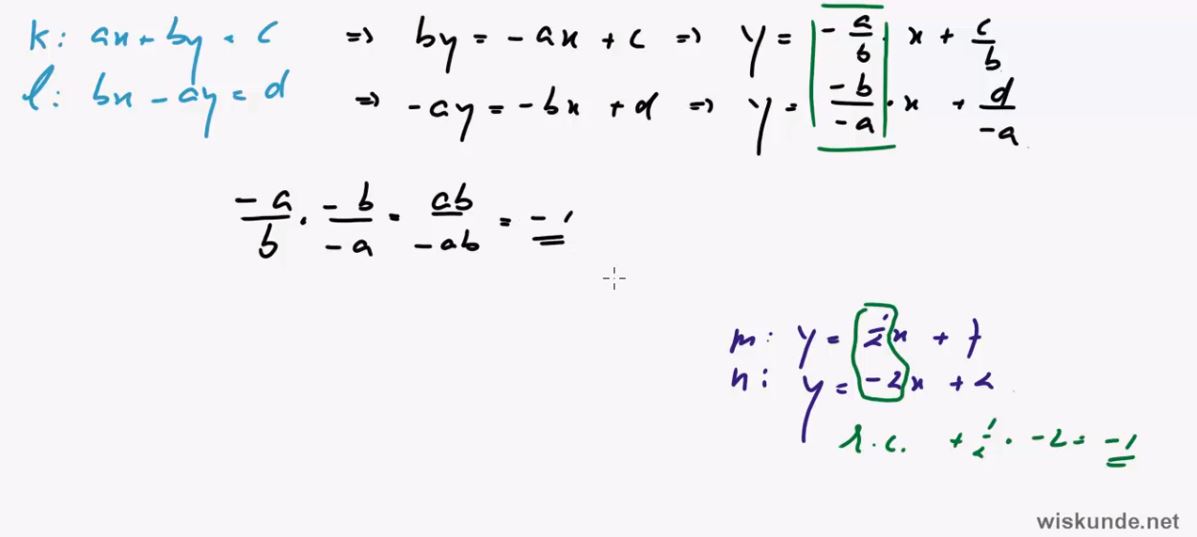 k: ax + by = c => by = -ax + c => y = -a/b · x + c/b
l: bx - ay = d => -ay = -bx + d => y = -b/-a · x + d/-a
-a/b · -b/-a = ab/-ab = -1
m: y = 1/2x + 7
n: y = -2x + 2
r.c. + 1/2 · -2 = -1
wiskunde.net